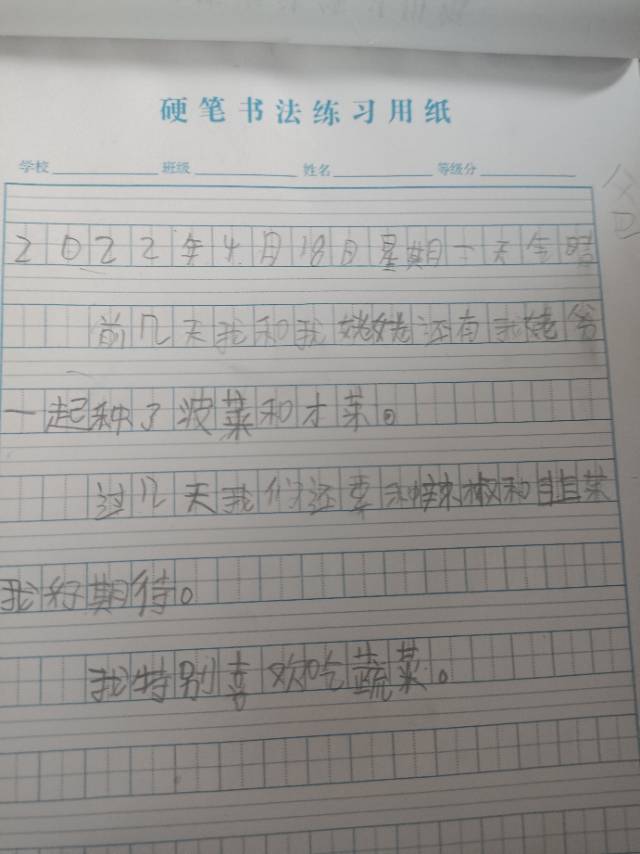 硬笔书法练习用纸
学校 班级 姓名 等级分
2022年4月18日星期一天气晴
前几天我和我姥姥还有我姥爷
一起种了波菜和才菜。
过几天我们还要种辣椒和韭菜
我好期待。
我特别喜欢吃蔬菜。